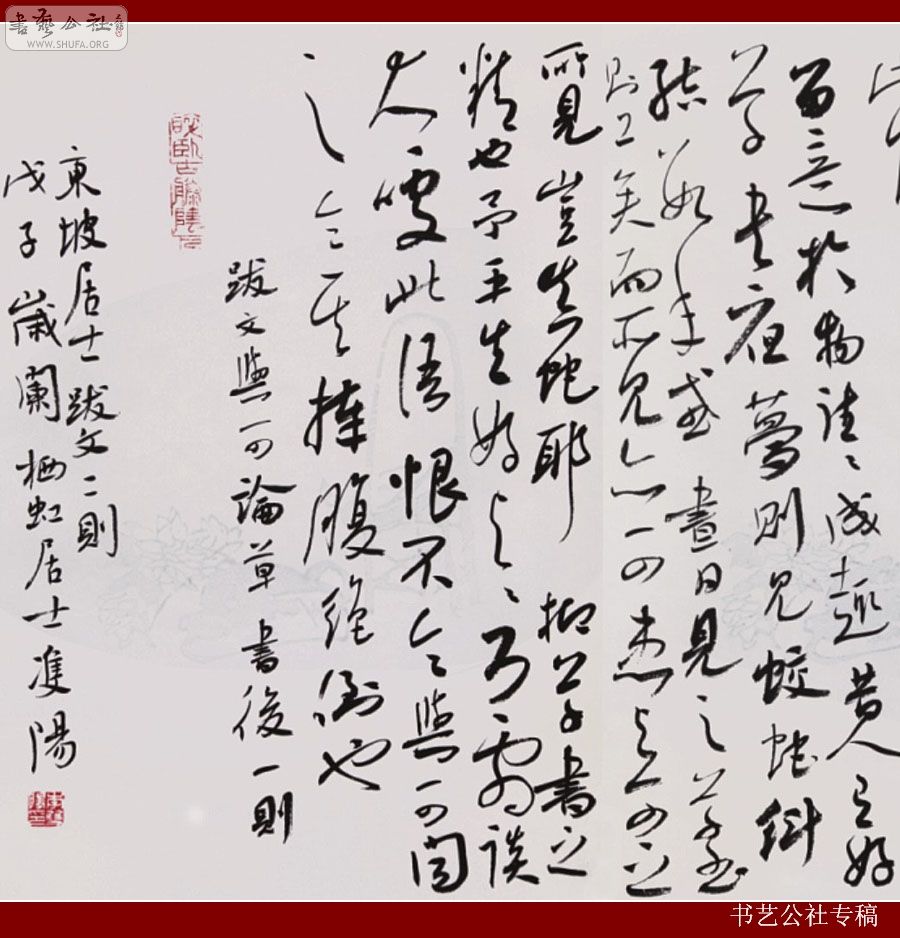 書藝公社
WWW.SHUFA.ORG
留意於物往々成趣昔人有好
草書夜夢則見蛟蛇糾
結數年或晝日見之草書
則工矣而所見亦可患與可之
所見豈真蛇耶抑草書之
精也予平生好與々可劇談
大噱此語恨不令與可聞
之令其捧腹絕倒也
跋文與可論草書後一則
東坡居士跋文二則
戊子歲闌栖虹居士雙陽
书艺公社专稿